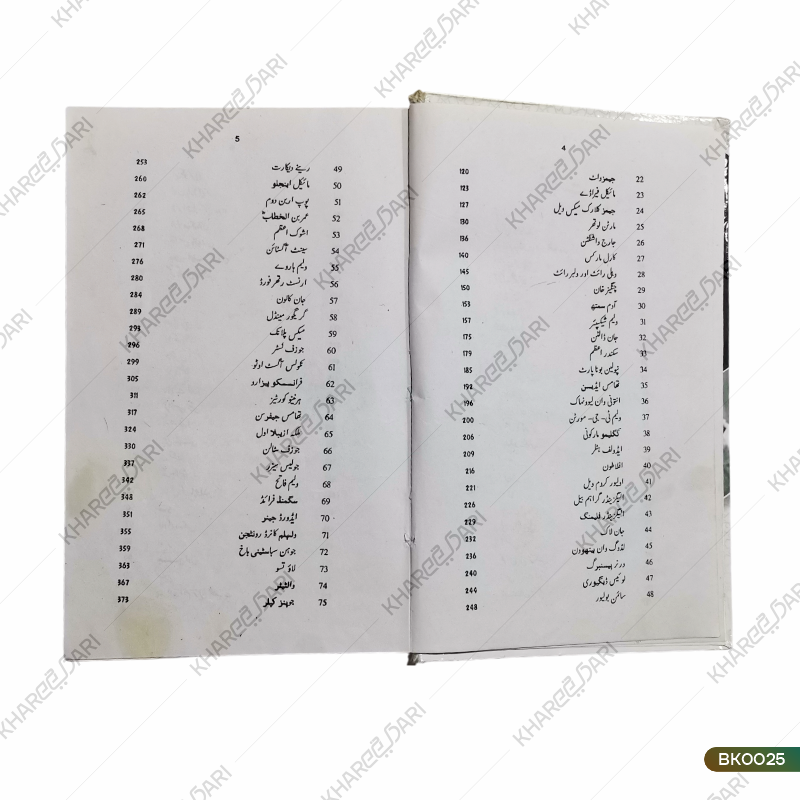 4
22 جیمز واٹ 120
23 مائیکل فیراڈے 123
24 جیمز کلارک میکس ویل 127
25 مارٹن لوتھر 130
26 جارج واشنگٹن 136
27 کارل مارکس 140
28 ویلی رائٹ اور ولبر رائٹ 145
29 چنگیز خان 150
30 آدم سمتھ 153
31 ولیم شیکسپئر 157
32 جان ڈالٹن 175
33 سکندر اعظم 179
34 نپولین بونا پارٹ 185
35 تھامس ایڈیسن 192
36 انتونی وان لیووٹہاک 196
37 ولیم ٹی- جی- مورٹن 200
38 گگلیمو مارکونی 206
39 ایڈولف ہٹلر 209
40 افلاطون 216
41 اولیور کروم ویل 221
42 الیگزینڈر گراہم بیل 226
43 الیگزینڈر فلیمنگ 229
44 جان لاک 232
45 لڈوگ وان بیتھوون 236
46 ورنر ہیسنبرگ 240
47 لوئیس ڈیگیوری 244
48 سائمن بولیور 248
5
49 رینے ڈیکارٹ 253
50 مائیکل اینجلو 260
51 پوپ اربن دوم 262
52 عمر بن الخطابؓ 265
53 اشوک اعظم 268
54 سینٹ آگسٹائن 271
55 ولیم ہاروے 276
56 ارنسٹ رتھر فورڈ 280
57 جان کالون 284
58 گریگور مینڈل 289
59 میکس پلانک 293
60 جوزف لسٹر 296
61 نکولس آگسٹ اوٹو 299
62 فرانسسکو پیزارو 305
63 ہرنینڈو کورٹیز 311
64 تھامس جیفرسن 317
65 ملکہ ازبیلا اول 324
66 جوزف سٹالن 330
67 جولیس سیزر 337
68 ولیم فاتح 342
69 سگمنڈ فرائڈ 348
70 ایڈورڈ جینر 351
71 ولہلم کانرڈ رونٹجن 355
72 جوہن سباسٹینی باخ 359
73 لاؤ تسو 363
74 والٹیئر 367
75 جوہنز کیپلر 373
BK0025